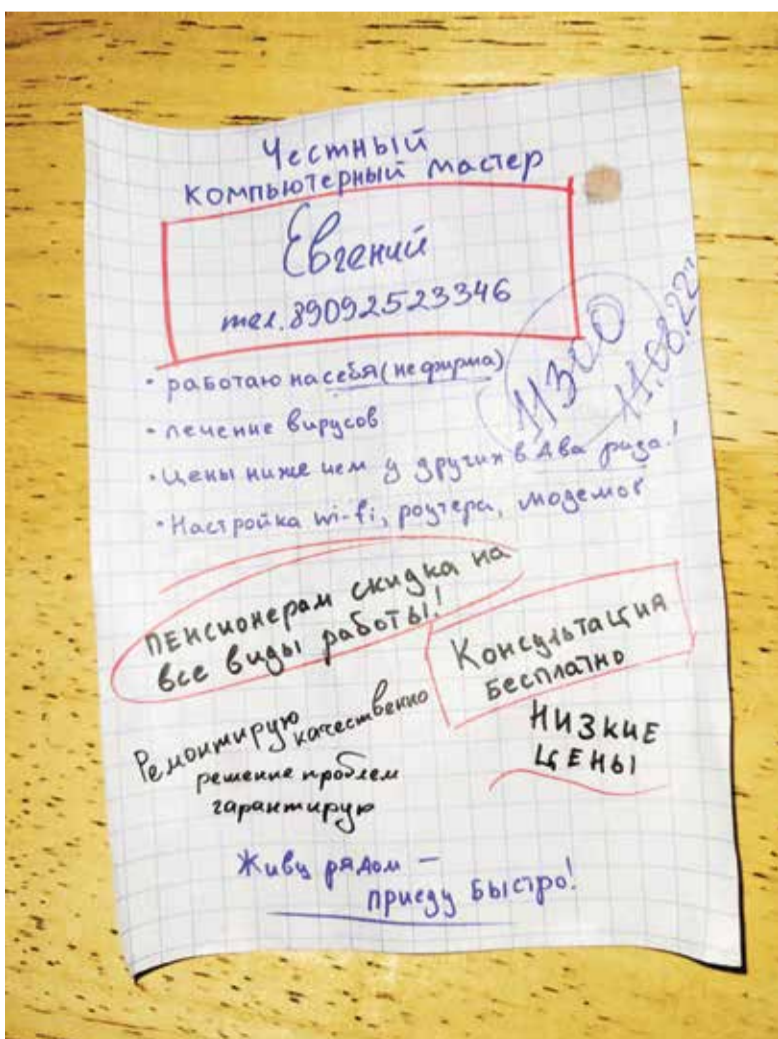 Честный
компьютерный мастер
Евгений
тел. 89092523346
11300
11.08.22г
• работаю на себя (не фирма)
• лечение вирусов
• Цены ниже чем у других в два раза!
• Настройка wi-fi, роутера, модемов
пенсионерам скидка на
все виды работы!
Консультация
бесплатно
Ремонтирую качественно
решение проблем
гарантирую
НИЗКИЕ
ЦЕНЫ
Живу рядом –
приеду быстро!